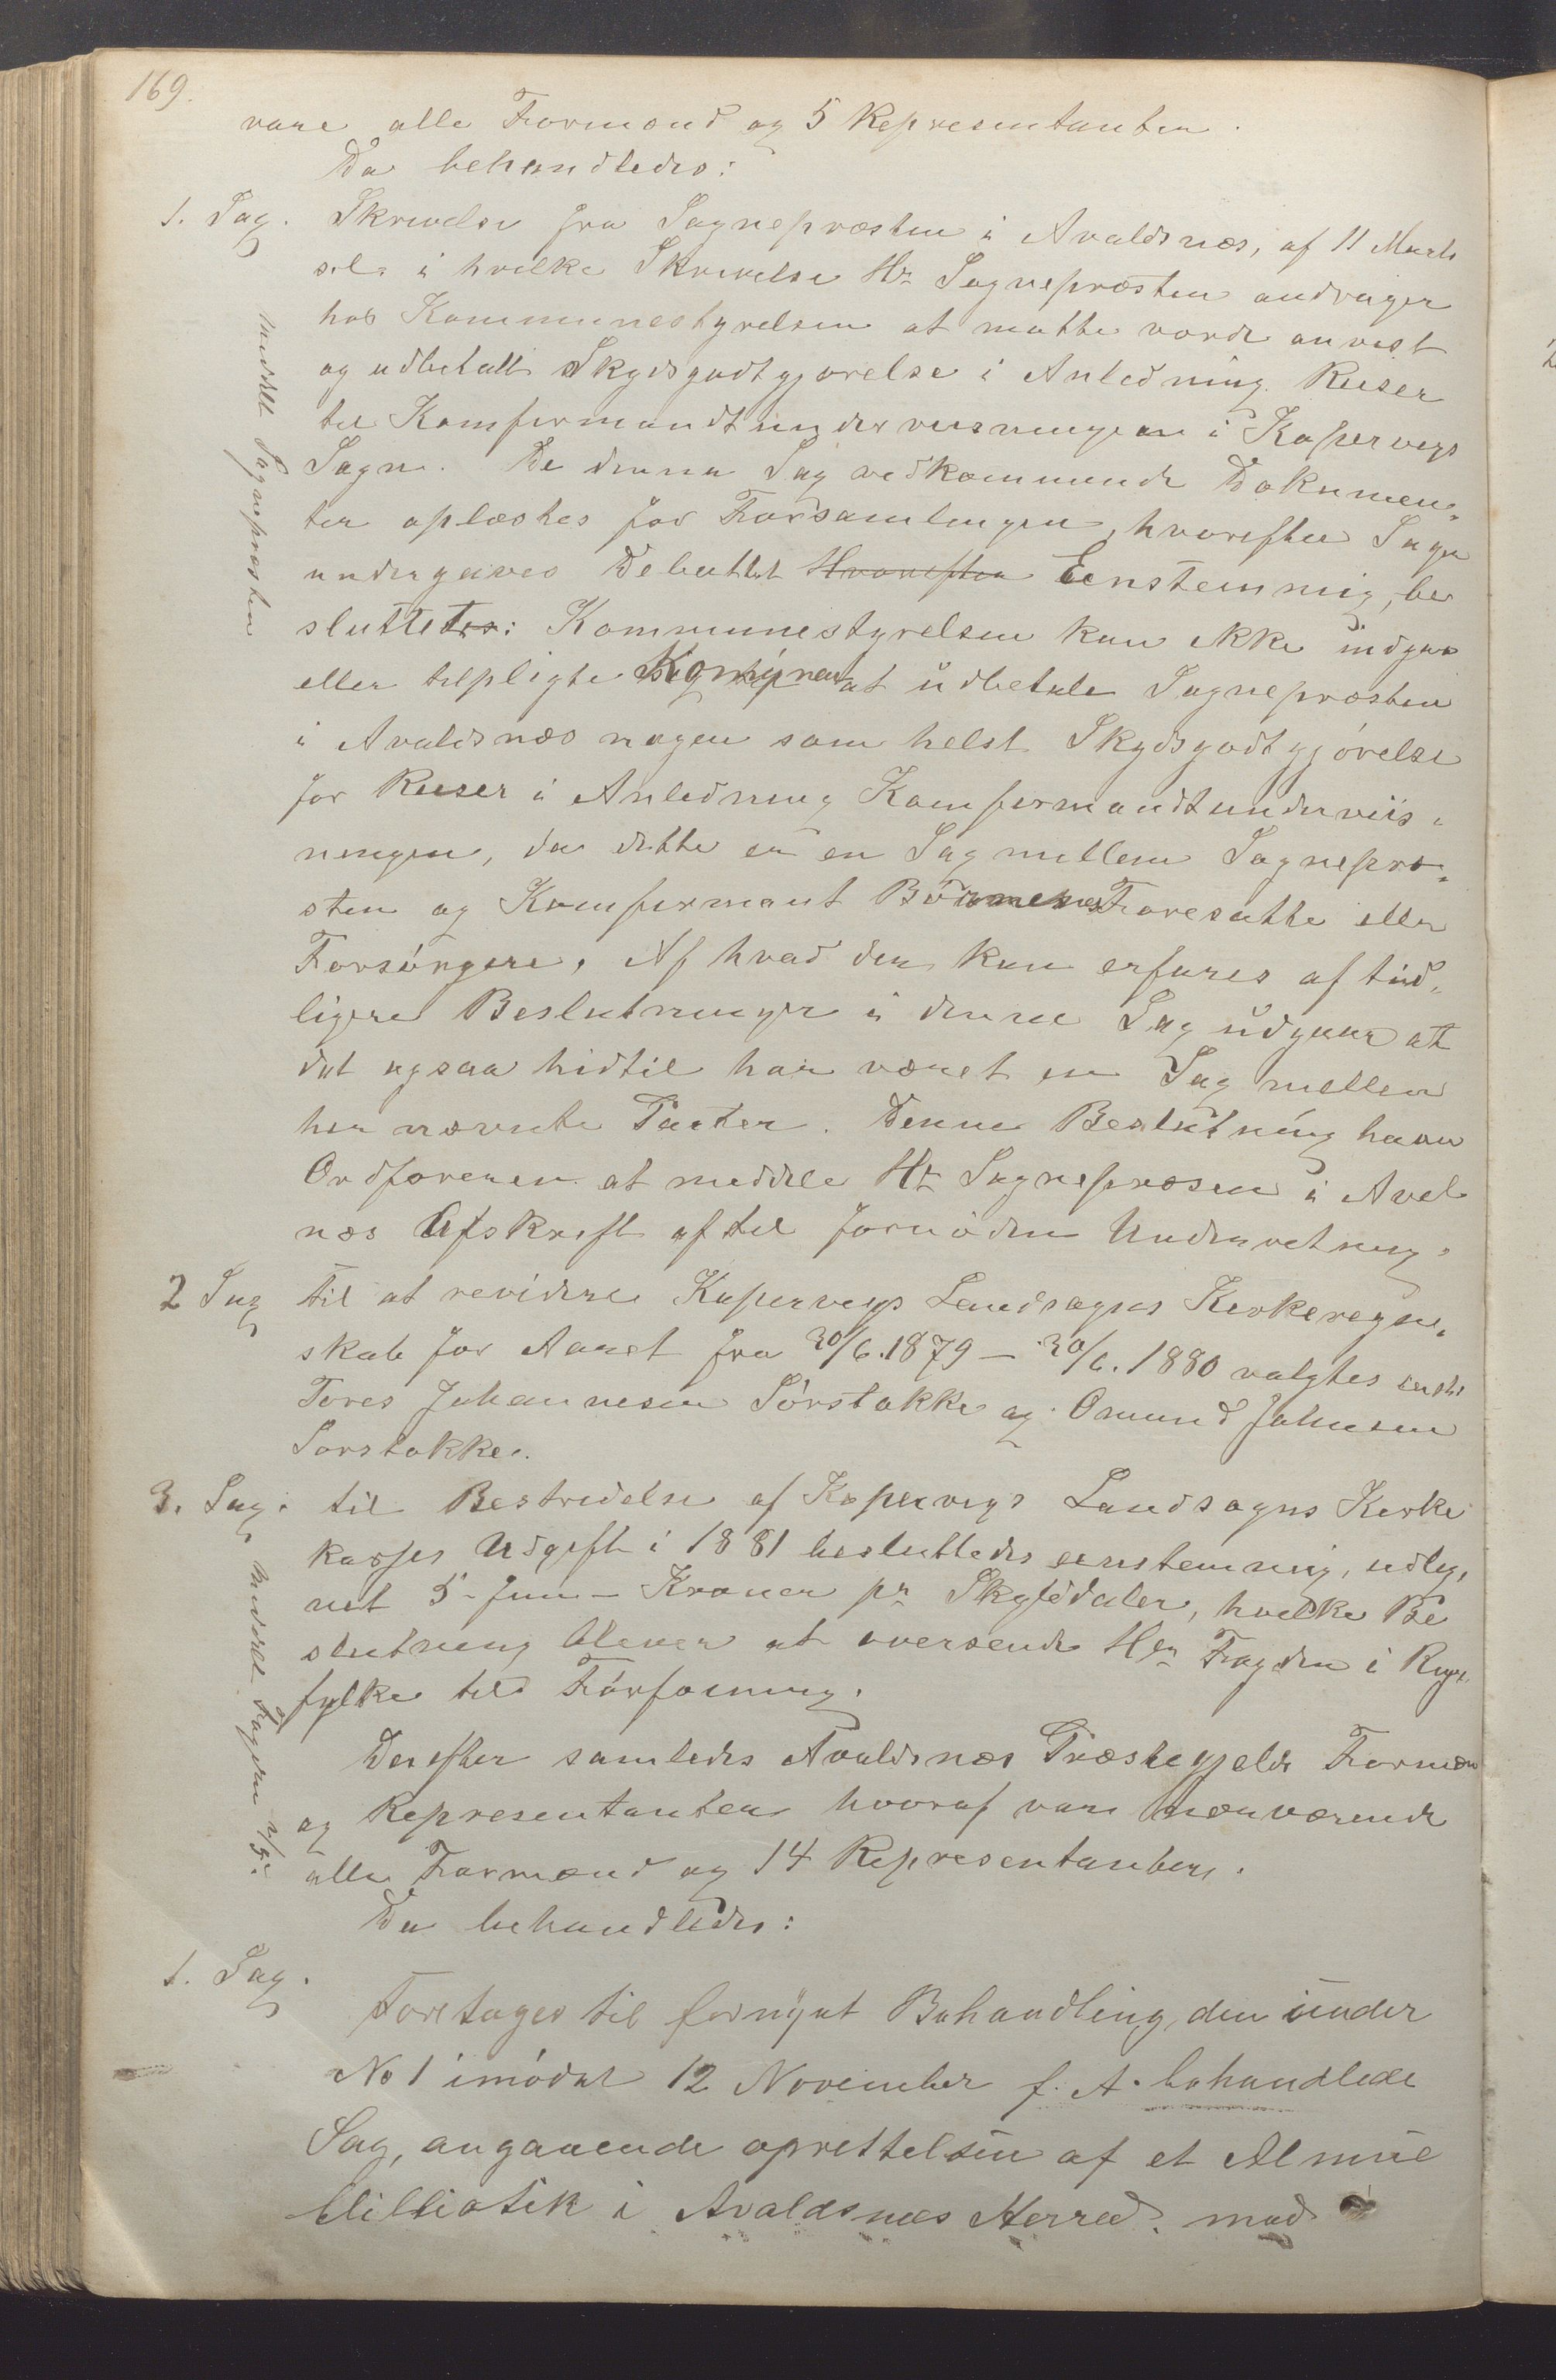 169.
vare alle Formænd og 5 Representanter.
Da behandledes:
1. Sag. Skrivelse fra Sognepræsten i Avaldsnæs, af 11 Marts
sel. i hvilke Skrivelse Hr Sognepræsten andrager
hos Kommunestyrelsen at maatte vorde anvist
og udbetalt Skydsgodtgjørelse i Anledning Reiser
til Komfirmandtundervisningen i Kopervigs
Sogn. De denna Sag vedkommende Dokumen-
ter oplæstes for Forsamlingen, hvorefter Sagen
undergaves Debattet Hvorefter Eenstemmig, be
sluttetes: Kommunestyrelsen kan ikke indgaa
eller tilpligte Komynen at udbetale Sognepræsten
i Avaldsnæs nogen som helst Skydsgodtgjörelse
for Reiser i Anledning Komfirmandtunderviis-
ningen, da dette er en Sag mellem Sognepræ-
sten og Komfirmant Börnenes Foresatte eller
Forsörgere. Af hvad der kan erfares af tid-
ligere Beslutninger i denne Sag udgaar at
det ogsaa hidtil har været en Sag mellem
her nævnte Parter. Denne Beslutning haver
Ordføreren at meddele Hr Sognepræsen i Avel
næs Afskrift af til fornöden Underretning.
meddelt Sognepræsten
2 Sag til at revidere Kopervigs Landsogns Kirkeregn-
skab for Aaret fra 30/6.1879 – 30/6.1880 valgtes enst.
Tores Johannesen Sörstokke og Omund Johnsen
Sorstokke.
3. Sag. til Bestridelse af Kopervigs Landsogns Kirke
kasses Udgift i 1881 besluttedes eenstemmig, udlig-
net 5 - fem - Kroner pr Skylddaler, hvilke Be
slutning bliver at oversende Hr Fogden i Ryt
fylke til Förføining.
meddelt Fogden 2/5.
Derefter samledes Avaldsnæs Præstegjelds Formæn
og Representanter hvoraf vare nærværende
alle Formænd og 14 Representanter.
Da behandledes:
1. Sag.
Foretages til fornyet Behandling, den under
No 1 imödet 12 November f. A. behandlede
Sag, angaaende oprettelsen af et Almue
bibliotek i Avaldsnæs Herred. med